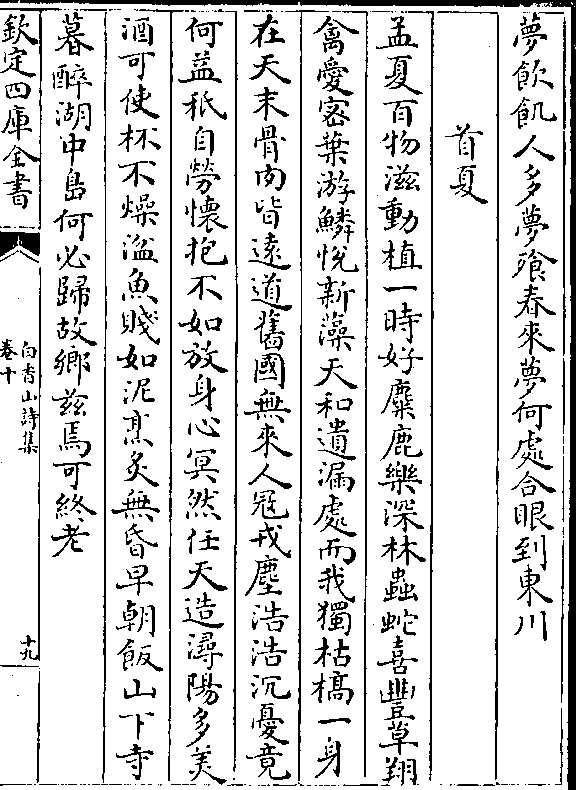 夢飲飢人多夢飡春來夢何處合眼到東川
首夏
孟夏百物滋動植一時好麋鹿樂深林蟲蛇喜豐草翔
禽愛宻葉游鱗悅新藻天和遺漏處而我獨枯槁一身
在天末骨肉皆遠道舊國無來人冦戎塵浩浩沉憂竟
何益秪自勞懷抱不如放身心冥然任天造潯陽多美
酒可使杯不燥湓魚賤如泥烹炙無昏早朝飯山下寺
暮醉湖中島何必歸故鄉兹焉可終老
欽定四庫全書
白香山詩集
卷十
十九